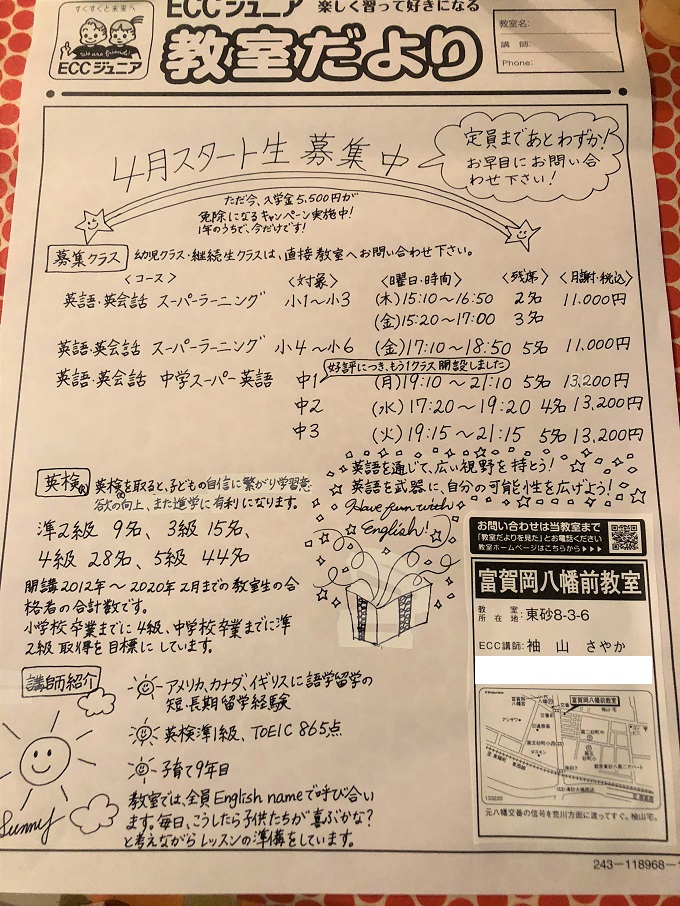 すくすくと未来へ
We are friend!
ECCジュニア
ECCジュニア 楽しく習って好きになる
教室だより
教室名:
講 師:
Phone:
4月スタート生募集中
定員まであとわずか!
お早目にお問い合
わせ下さい!
ただ今、入学金5,500円が
免除になるキャンペーン実施中!
1年のうちで、今だけです!
募集クラス 幼児クラス・継続生クラスは、直接教室へお問い合わせ下さい。
<コース> <対象> <曜日・時間> <残席> <月謝・税込>
英語・英会話 スーパーラーニング 小1〜小3 (木)15:10〜16:50 2名 11,000円
(金)15:20〜17:00 3名
英語・英会話 スーパーラーニング 小4〜小6 (金)17:10〜18:50 5名 11,000円
好評につき、もう1クラス開設しました
英語・英会話 中学スーパー英語 中1 (月)19:10〜21:10 5名 13,200円
中2 (水)17:20〜19:20 4名 13,200円
中3 (火)19:15〜21:15 5名 13,200円
英検 英検を取ると、子どもの自信に繋がり学習意
欲の向上、また進学に有利になります。
準2級 9名、3級 15名、
4級 28名、5級 44名
開講2012年〜2020年2月までの教室生の合
格者の合計数です。
小学校卒業までに4級、中学校卒業までに準
2級取得を目標にしています。
英語を通じて、広い視野を持とう!
英語を武器に、自分の可能性を広げよう!
Have fun with
English!
講師紹介
アメリカ、カナダ、イギリスに語学留学の
短・長期留学経験
英検準1級、TOEIC 865点
子育て9年目
教室では、全員English nameで呼び合い
ます。毎日、こうしたら子供たちが喜ぶかな?
と考えながらレッスンの準備をしています。
Sunny
お問い合わせは当教室まで
「教室だよりを見た」とお電話ください
教室ホームページはこちらから▶▶▶
富賀岡八幡前教室
教室所在地:東砂8-3-6
ECC講師:袖山 さやか
富賀岡八幡前教室
133220
元八幡交番の信号を荒川方面に渡ってすぐ。檜山宅。
243-118968-1